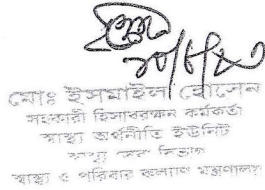 ২০/৮/২৩
মোঃ ইসমাইল হোসেন
সহকারী হিসাবরক্ষন কর্মকর্তা
স্বাস্থ্য অর্থনীতি ইউনিট
স্বাস্থ্য সেবা বিভাগ
স্বাস্থ্য ও পরিবার কল্যাণ মন্ত্রণালয়